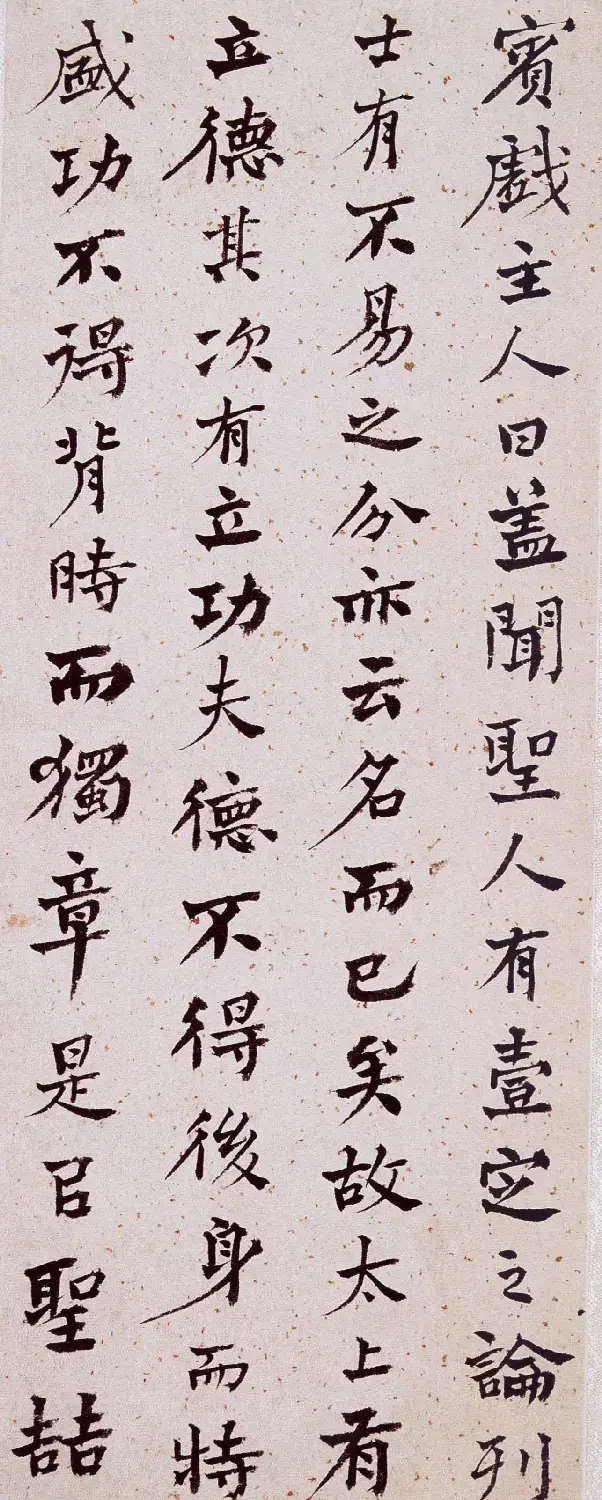 賓戲主人曰盖聞聖人有壹定之論列
士有不易之分亦云名而已矣故太上有
立德其次有立功夫德不得後身而特
盛功不得背時而獨章是㠯聖喆